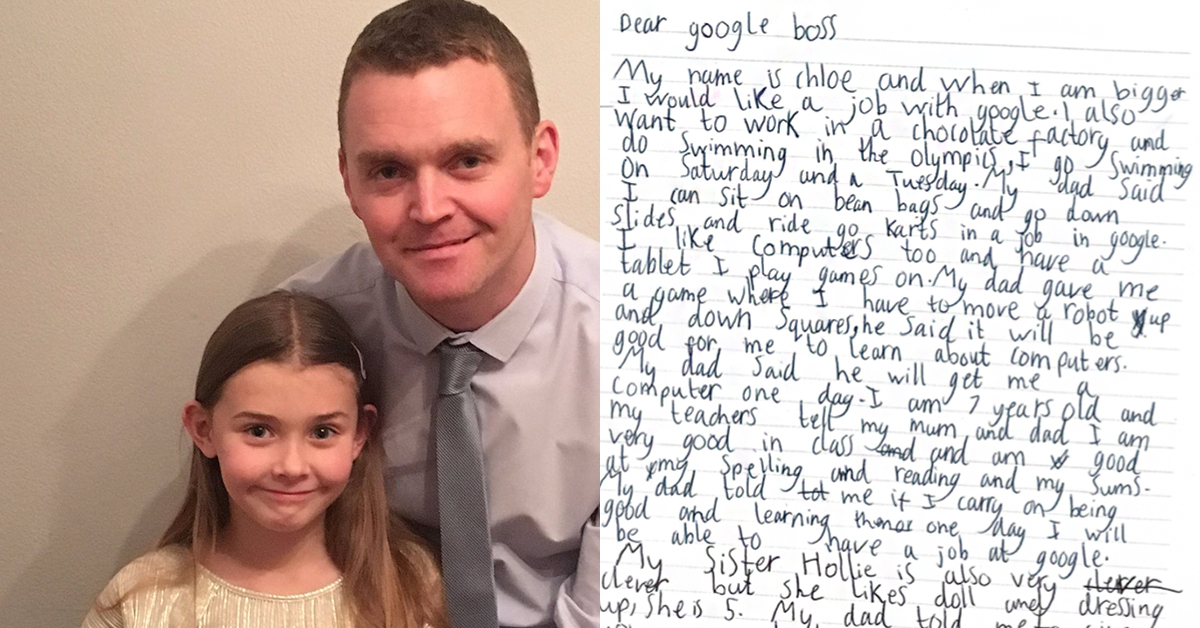 Dear google boss
My name is chloe and when I am bigger
I would like a job with google. I also
want to work in a chocolate factory and
do swimming in the olympics, I go Swimming
on Saturday and a Tuesday. My dad said
I can sit on bean bags and go down
slides and ride go karts in a job in google.
I like computers too and have a
tablet I play games on. My dad gave me
a game where I have to move a robot up
and down squares, he said it will be
good for me to learn about computers.
My dad said he will get me a
computer one day. I am 7 years old and
my teachers tell my mum and dad I am
very good in class and and am good
at my spelling and reading and my sums.
My dad told me if I carry on being
good and learning one day I will
be able to have a job at google.
My Sister Hollie is also very clever
clever but she likes doll and dressing
up, she is 5. My dad told me